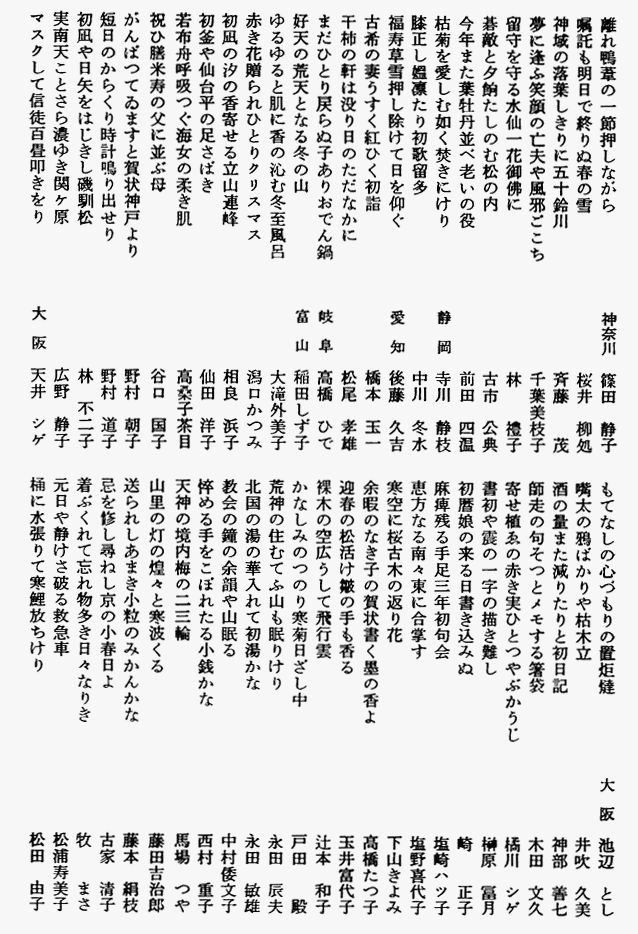 離れ鴨葦の一節押しながら　神奈川　篠田　静子
嘱託も明日で終りぬ春の雪　桜井　柳処
神域の落葉しきりに五十鈴川　斉藤　茂
夢に逢ふ笑顔の亡夫や風邪ごこち　千葉美枝子
留守を守る水仙一花御佛に　林　禮子
碁敵と夕餉たしのむ松の内　古市　公典
今年また葉牡丹並べ老いの役　前田　四温
枯菊を愛しむ如く焚きにけり　静岡　寺川　静枝
膝正し媼凛たり初歌留多　中川　冬水
福寿草雪押し除けて日を仰ぐ　愛知　後藤　久吉
古希の妻うすく紅ひく初詣　橋本　玉一
干柿の軒は没り日のただなかに　松尾　孝雄
まだひとり戻らぬ子ありおでん鍋　岐阜　高橋　ひで
好天の荒天となる冬の山　富山　稲田しず子
ゆるゆると肌に香の沁む冬至風呂　大滝外美子
赤き花贈られひとりクリスマス　潟口かつみ
初凪の汐の香寄せる立山連峰　相良　浜子
初釜や仙台平の足さばき　仙田　洋子
若布舟呼吸つぐ海女の柔き肌　高桑子茶目
祝ひ膳米寿の父に並ぶ母　谷口　国子
がんばつてゐますと賀状神戸より　野村　朝子
短日のからくり時計鳴り出せり　野村　道子
初凪や日矢をはじきし磯馴松　林　不二子
実南天ことさら濃ゆき関ヶ原　広野　静子
マスクして信徒百畳叩きをり　大阪　天井　シゲ
もてなしの心づもりの置炬燵　大阪　池辺　とし
嘴太の鴉ばかりや枯木立　井吹　久美
酒の量また減りたりと初日記　神部　善七
師走の句そつとメモする箸袋　木田　文久
寄せ植ゑの赤き実ひとつやぶかうじ　橘川　シゲ
書初や震の一字の描き難し　榊原　冨月
初暦娘の来る日書き込みぬ　崎　正子
麻痺残る手足三年初句会　塩崎ハツ子
恵方なる南々東に合掌す　塩野喜代子
寒空に桜古木の返り花　下山きよみ
余暇のなき子の賀状書く墨の香よ　高橋たつ子
迎春の松活け皺の手も香る　玉井富代子
裸木の空広うして飛行雲　辻本　和子
かなしみのつのり寒菊日ざし中　戸田　殿
荒神の住むてふ山も眠りけり　永田　辰夫
北国の湯の華入れて初湯かな　永田　敏雄
教会の鐘の余韻や山眠る　中村倭文子
悴める手をこぼれたる小銭かな　西村　重子
天神の境内梅の二三輪　馬場　つや
山里の灯の煌々と寒波くる　藤田吉治郎
送られしあまき小粒のみかんかな　藤本　絹枝
忌を修し尋ねし京の小春日よ　古家　清子
着ぶくれて忘れ物多き日々なりき　牧　まさ
元日や静けさ破る救急車　松浦寿美子
桶に水張りて寒鯉放ちけり　松田　由子